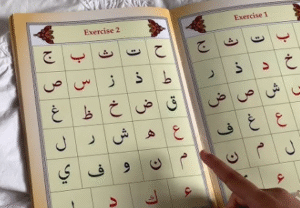 Exercise 1
ب ت ث ج
خ د ذ ر
ش ص ض
ع غ ف
ل م ن
ء
Exercise 2
ح ت ث ب ج
ط ذ ز س ص
ق ض خ ظ غ
ع ه ش ر ل
م ن و ف ي
ء ك د